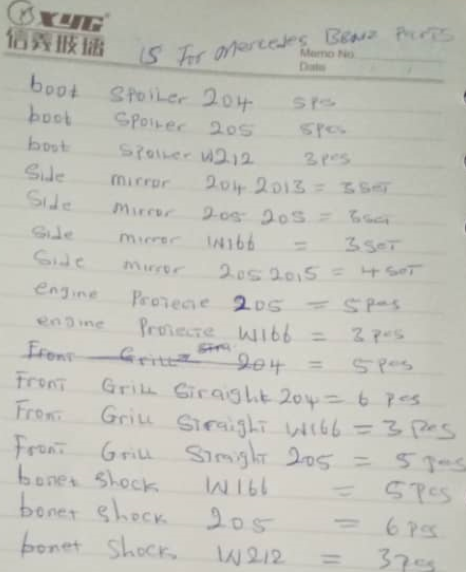 XYG
信義玻璃
IS For Mercedes Benz Parts
Memo No
Date
boot Spoiler 204 5pcs
boot Spoiler 205 5pcs
boot Spoiler W212 3pcs
Side mirror 204 2013 = 3 SET
Side mirror 205 205 = 3 set
Side mirror W166 = 3 SET
Side mirror 205 2015 = 4 SET
engine Protecte 205 = 5 pcs
engine Protecte W166 = 3 pcs
Front Grill 204 = 5 pcs
Front Grill Straight 204 = 6 pcs
Front Grill Straight W166 = 3 pcs
Front Grill Straight 205 = 5 pcs
bonet Shock W166 = 5 pcs
bonet Shock 205 = 6 pcs
bonet Shock W212 = 3 pcs